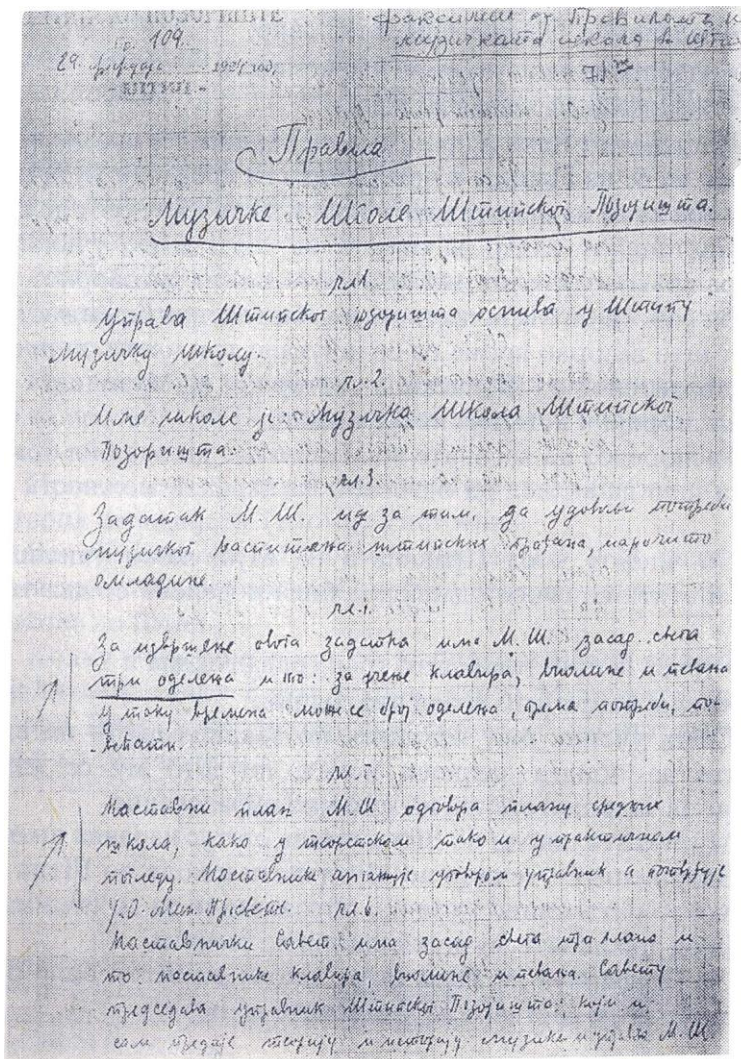 ПОЗОРИШТЕ
Бр. 109
29. фебруара 1924 год.
- ШТИП -
факсимил от Правилата на
музичката школа в Штип
Правила
Музичке Школе Штипског Позоришта.
чл. 1.
Управа Штипског Позоришта оснива у Штипу
Музичку Школу.
чл. 2.
Име школе је: Музичка Школа Штипског
Позоришта.
чл. 3.
Задатак М. Ш. иде за тим, да удовољи потреби
музичког васпитања штипских грађана, нарочито
омладине.
чл. 4.
За извршење овога задатка има М. Ш. засад свега
три одељења и то: за учење клавира, виолине и певања
у току времена може се број одељења, према потреби, по-
већати.
чл. 5.
Наставни план М. Ш. одговара плану средњих
школа, како у теоретском тако и у практичном
погледу. Наставнике ангажује уговором управник а потврђује
У.О. Мин. Просвете. чл. 6.
Наставнички Савет има засад свега три члана и
то: наставнике клавира, виолине и певања. Савету
председава управник Штипског Позоришта, који и
сам предаје теорију и историју музике и управља М. Ш.